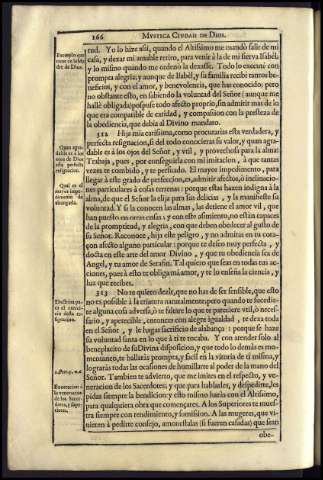 166 MYSTICA CIUDAD DE DIOS.
tud. Yo lo hize assi, quando el Altissimo me mandò salir de mi
casa, y dexar mi amable retiro, para venir à la de mi sierva Isabèl,
y lo mismo quando me ordenò la dexasse. Todo lo executè con
prompta alegria; y aunque de Isabèl, y su familia recibì tantos be-
neficios, y con el amor, y benevolencia, que has conocido; pero
no obstante esto, en sabiendo la voluntad del Señor (aunque me
hallè obligada) pospuse todo afecto proprio, sin admitir mas de lo
que era compatible de caridad, y compassion con la presteza de
la obediencia, que debia al Divino mandato.
312 Hija mia carissima, como procurarias esta verdadera, y
perfecta resignacion, si del todo conocieras su valor, y quan agra-
dable es à los ojos del Señor, y util, y provechosa para la alma!
Trabaja, pues, por conseguirla con mi imitacion, à que tantas
vezes te combido, y te persuado. El mayor impedimento, para
llegar à este grado de perfeccion, es, admitir afectos, ò inclinacio-
nes particulares à cosas terrenas: porque estas hazen indigna à la
alma, de que el Señor la elija para sus delicias, y la manifieste su
voluntad. Y si la conocen las almas, las detiene el amor vil, que
han puesto en otras cosas; y con este asimiento, no estàn capaces
de la promptitud, y alegria, con que deben obedecer al gusto de
su Señor. Reconoce, hija, este peligro, y no admitas en tu cora-
çon afecto alguno particular: porque te deseo muy perfecta, y
docta en este arte del amor Divino, y que tu obediencia sea de
Angel, y tu amor de Serafin. Tal quiero que seas en todas tus ac-
ciones, pues à esto te obliga mi amor, y te lo enseña la ciencia, y
luz que recibes.
313 No te quiero dezir, que no has de ser sensible, que esto
no es possible à la criatura naturalmente; pero quando te sucedie-
re alguna cosa adversa, ò te faltare lo que te pareciere util, ò neces-
sario, y apetecible, entonces con alegre igualdad, te dexa toda
en el Señor, y le hagas sacrificio de alabança: porque se haze
su voluntad santa en lo que à ti te tocaba. Y con atender solo al
beneplacito de su Divina disposicion, y que todo lo demàs es mo-
mentaneo, te hallaràs prompta, y facil en la vitoria de ti misma, y
lograràs todas las ocasiones de humillarte al poder de la mano del
Señor. Tambien te advierto, que me imites en el respecto, y ve-
neracion de los Sacerdotes; y que para hablarles, y despedirte, les
pidas siempre la bendicion; y esto mismo haràs con el Altissimo,
para qualquiera obra que començares. A los Superiores te mues-
tra siempre con rendimiento, y sumission. A las mugeres, que vi-
nieren à pedirte consejo, amonestalas (si fueren casadas) que sean
obe-
Quan agra-
dable es à los
ojos de Dios
esta perfecta
resignacion.